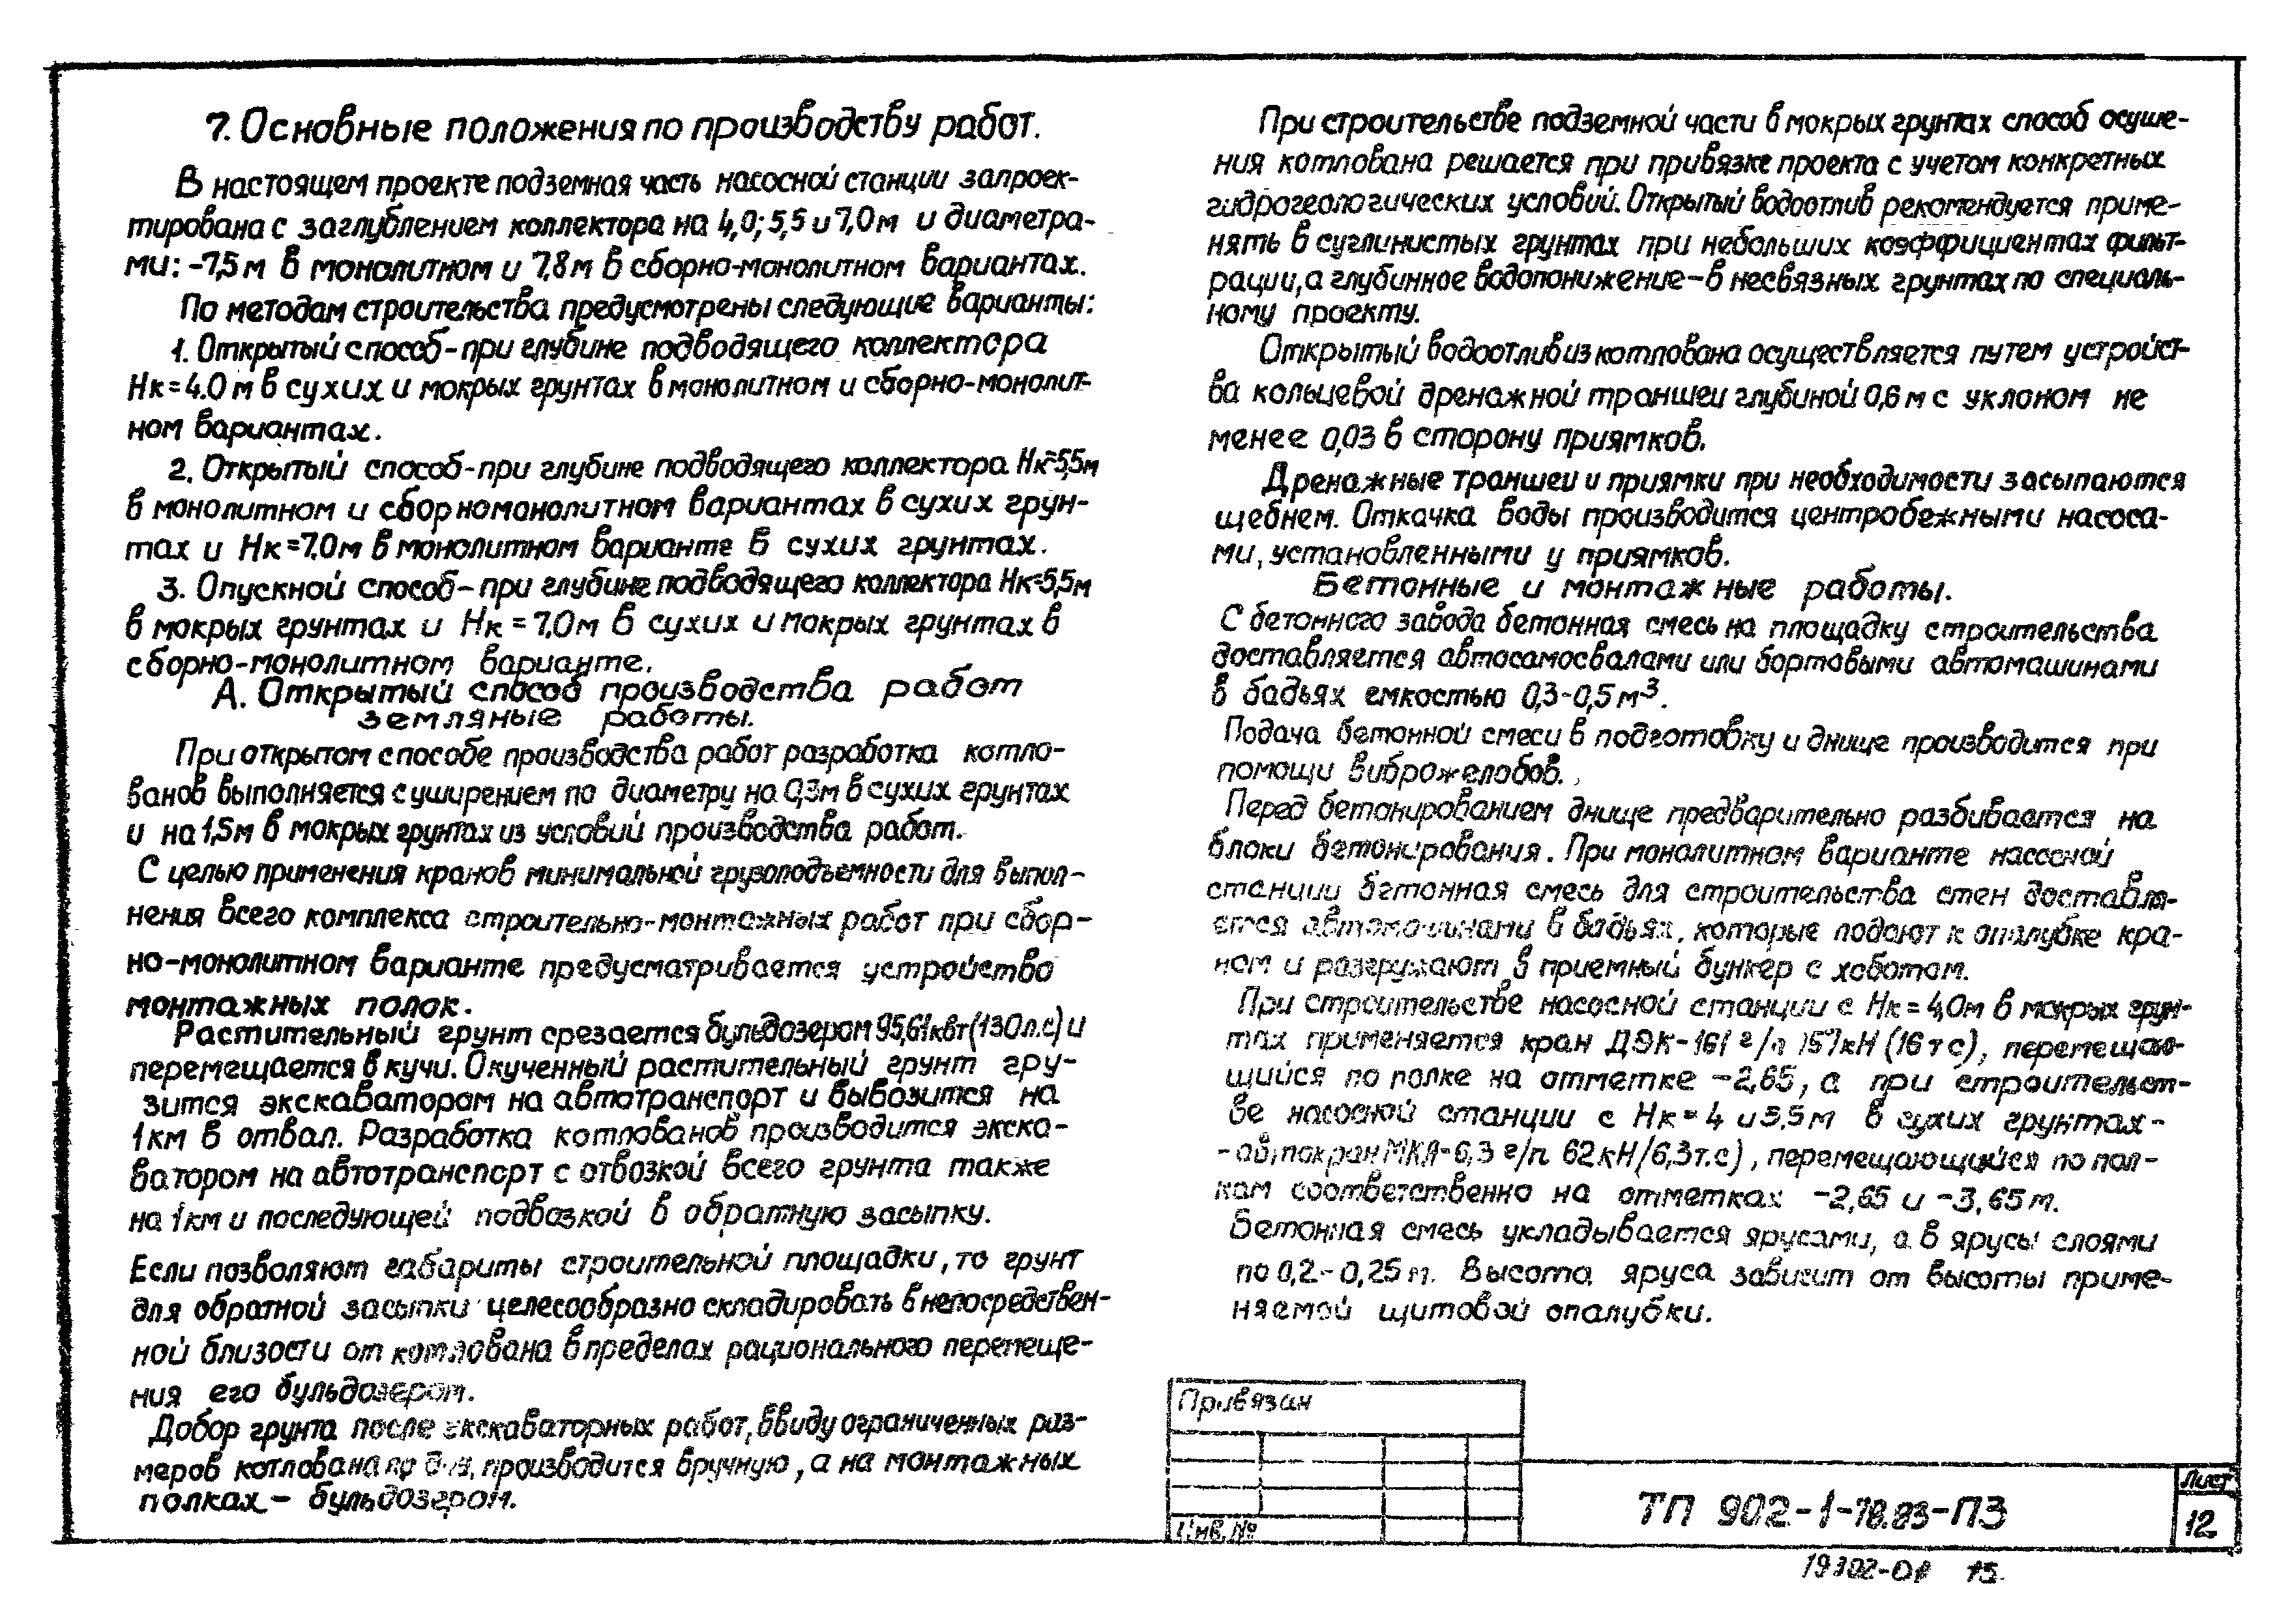 7. Основные положения по производству работ.
В настоящем проекте подземная часть насосной станции запроек-
тирована с заглублением коллектора на 4,0; 5,5 и 7,0м и диаметра-
ми: -7,5м в монолитном и 7,8м в сборно-монолитном вариантах.
По методам строительства предусмотрены следующие варианты:
1. Открытый способ-при глубине подводящего коллектора
Нк=4.0 м в сухих и мокрых грунтах в монолитном и сборно-монолит-
ном вариантах.
2. Открытый способ-при глубине подводящего коллектора Нк=5,5м
в монолитном и сборномонолитном вариантах в сухих грун-
тах и Нк=7.0м в монолитном варианте в сухих грунтах.
3. Опускной способ-при глубине подводящего коллектора Нк=5,5м
в мокрых грунтах и Нк=7,0м в сухих и мокрых грунтах в
сборно-монолитном варианте.
А. Открытый способ производства работ
земляные работы.
При открытом способе производства работ разработка котло-
ванов выполняется с уширением по диаметру на 0,3м в сухих грунтах
и на 1,5м в мокрых грунтах из условий производства работ.
С целью применения кранов минимальной грузоподъемности для выпол-
нения всего комплекса строительно-монтажных работ при сбор-
но-монолитном варианте предусматривается устройство
монтажных полок.
Растительный грунт срезается бульдозером 95,61квт(130л.с) и
перемещается в кучи. Окученный растительный грунт гру-
зится экскаватором на автотранспорт и вывозится на
1км в отвал. Разработка котлованов производится экска-
ватором на автотранспорт с отвозкой всего грунта также
на 1км и последующей подвозкой в обратную засыпку.
Если позволяют габариты строительной площадки, то грунт
для обратной засыпки целесообразно складировать в непосредствен-
ной близости от котлована в пределах рационального перемеще-
ния его бульдозером.
Добор грунта после экскаваторных работ, ввиду ограниченных раз-
меров котлована по производится вручную, а на монтажных
полках - бульдозером.
При строительстве подземной части в мокрых грунтах способ осуше-
ния котлована решается при привязке проекта с учетом конкретных
гидрогеологических условий. Открытый водоотлив рекомендуется приме-
нять в суглинистых грунтах при небольших коэффициентах фильт-
рации, а глубинное водопонижение-в несвязных грунтах по специаль-
ному проекту.
Открытый водоотлив из котлована осуществляется путем устройст-
ва кольцевой дренажной траншеи глубиной 0,6 м с уклоном не
менее 0,03 в сторону приямков.
Дренажные траншеи и приямки при необходимости засыпаются
щебнем. Откачка воды производится центробежными насоса-
ми, установленными у приямков.
Бетонные и монтажные работы.
С бетонного завода бетонная смесь на площадку строительства
доставляется автосамосвалами или бортовыми автомашинами
в бадьях емкостью 0,3-0,5м³.
Подача бетонной смеси в подготовку и днище производится при
помощи виброжелобов.
Перед бетонированием днище предварительно разбивается на
блоки бетонирования. При монолитном варианте насосной
станции бетонная смесь для строительства стен доставля-
ется автомашинами в бадьях, которые подают к опалубке кра-
ном и разгружают в приемный бункер с хоботом.
При строительстве насосной станции с Нк=4,0м в мокрых грун-
тах применяется кран ДЭК-161 г/п 157кН (16тс), перемещаю-
щийся по полке на отметке -2,65, а при строительст-
ве насосной станции с Нк=4 и 5,5м в сухих грунтах-
-автокран МКА-6,3 г/п 62кН/6,3т.с), перемещающийся по пол-
кам соответственно на отметках -2,65 и -3,65м.
Бетонная смесь укладывается ярусами, а в ярусы слоями
по 0,2-0,25м. Высота яруса зависит от высоты приме-
няемой щитовой опалубки.
Привязан
Инв.№
ТП 902-1-78.83-ПЗ
Лист
12
19302-01 15